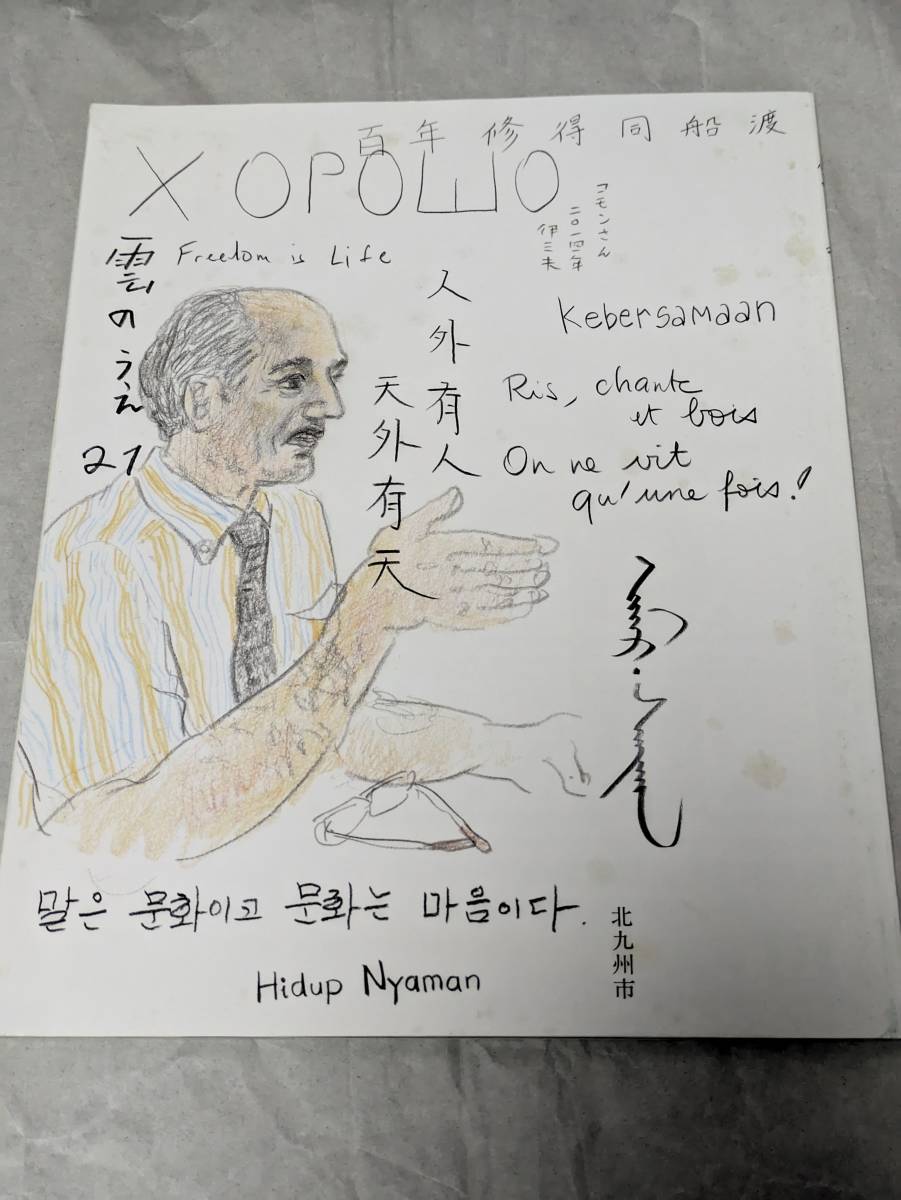 百年修得同船渡
ХОРОШО
コモンさん
二〇一四年
伊三夫
雲のうえ
21
Freedom is Life
人外有人
天外有天
Kebersamaan
Ris, chante
et bois
On ne vit
qu'une fois!
말은 문화이고 문화는 마음이다.
北九州市
Hidup Nyaman